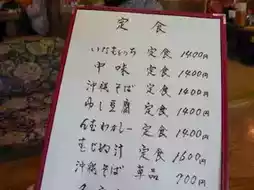 定食
いなむどぅち 定食 1400円
中味 定食 1400円
沖縄そば 定食 1400円
ゆし豆腐 定食 1400円
カレー 定食 1400円
汁 定食 1600円
沖縄そば 単品 900円